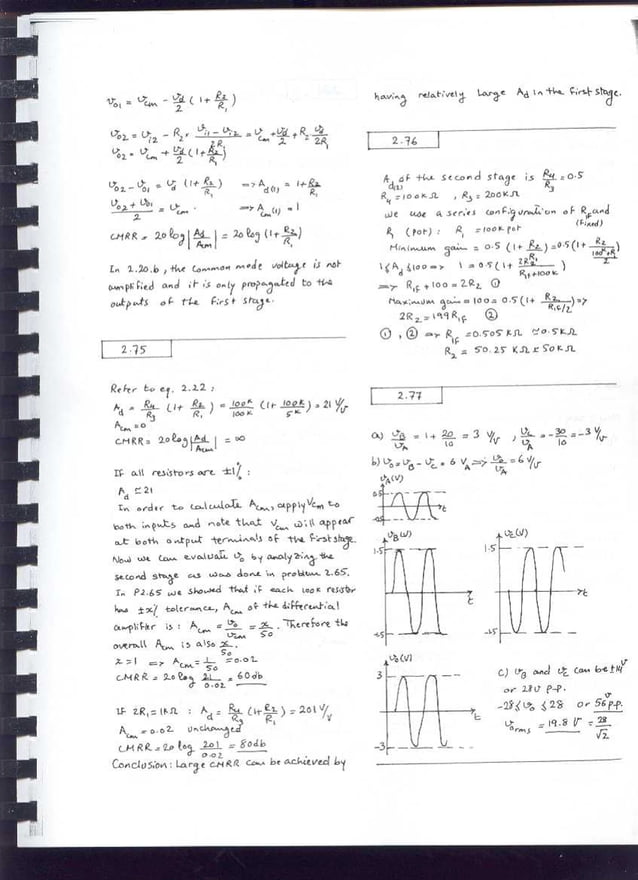 v01 = vcm - vd/2 (1 + R2/R1)
v02 = vi2 - R2 × (vi1 - vi2)/2R1 = vcm + vd/2 + R2 vd/2R1
v02 = vcm + vd/2 (1 + R2/R1)
v02 - v01 = vd (1 + R2/R1) => Ad(1) = 1 + R2/R1
(v02 + v01)/2 = vcm. => Acm(1) = 1
CMRR = 20 log |Ad/Acm| = 20 log (1 + R2/R1)
In 2.20.b, the common mode voltage is not
amplified and it is only propagated to the
outputs of the first stage.
2.75
Refer to eq. 2.22 :
Ad = R4/R3 (1 + R2/R1) = 100K/100K (1 + 100K/5K) = 21 V/V
Acm = 0
CMRR = 20 log |Ad/Acm| = ∞
If all resistors are ±1% :
Ad ≃ 21
In order to calculate Acm, apply Vcm to
both inputs and note that Vcm will appear
at both output terminals of the first stage.
Now we can evaluate vo by analyzing the
second stage as was done in problem 2.65.
In P2.65 we showed that if each 100K resistor
has ±x% tolerance, Acm of the differential
amplifier is : Acm = vo/vcm = x/50. Therefore the
overall Acm is also x/50.
x = 1 => Acm = 1/50 = 0.02
CMRR = 20 log 21/0.02 = 60db
If 2R1 = 1KΩ : Ad = R4/R3 (1 + R2/R1) = 201 V/V
Acm = 0.02 unchanged
CMRR = 20 log 201/0.02 = 80db
Conclusion: Large CMRR can be achieved by
having relatively large Ad in the first stage.
2.76
Ad(2) of the second stage is R4/R3 = 0.5
R4 = 100KΩ , R3 = 200KΩ
we use a series configuration of RF and
R1 (pot) : R1 = 100K pot
(fixed)
Minimum gain = 0.5 (1 + R2/) = 0.5 (1 + R2/
1 ≤ Ad ≤ 100 => 1 = 0.5 (1 + 2R2/R1F+100K)
=> R1F + 100 = 2R2 ①
Maximum gain = 100 = 0.5 (1 + R2/R1F/2) =>
2R2 = 199 R1F ②
①, ② => R1F = 0.505 KΩ ≃ 0.5KΩ
R2 = 50.25 KΩ ≃ 50KΩ
2.77
a) vB/vA = 1 + 20/10 = 3 V/V , vC/vA = -30/10 = -3 V/V
b) vo = vB - vC = 6 vA => vo/vA = 6 V/V
vA (V)
0.5
-0.5
t
vB (V)
1.5
-1.5
t
vC (V)
1.5
-1.5
t
vo (V)
3
-3
t
c) vB and vC can be ±14V
or 28V P-P.
-28 ≤ vo ≤ 28 or 56V P-P.
vorms = 19.8 V = 28/√2